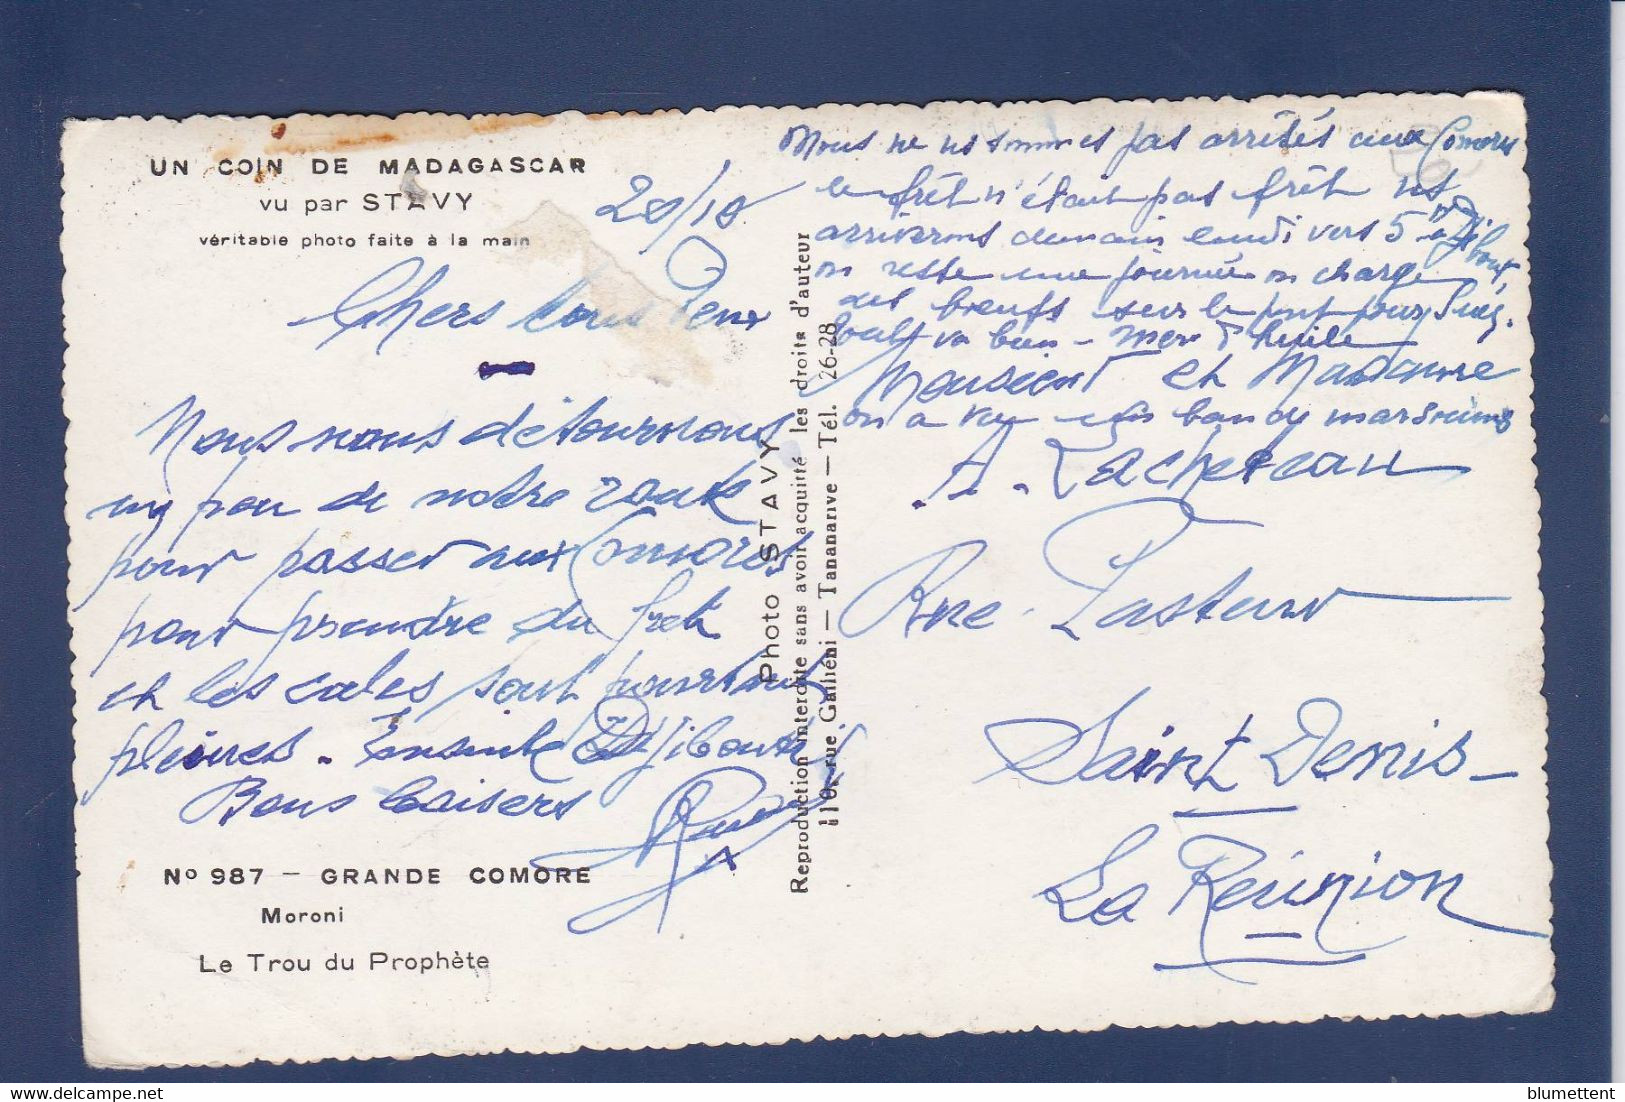 UN COIN DE MADAGASCAR
vu par STAVY
véritable photo faite à la main
28/10
Chers tous Deux
Nous nous détournons
un peu de notre route
pour passer aux Comores
pour prendre du fret
et les cales sont pourtant
pleines. Ensuite Djibouti
Bons baisers
Nº 987 — GRANDE COMORE
Moroni
Le Trou du Prophète
Photo STAVY
Reproduction interdite sans avoir acquitté les droits d'auteur
110, rue Galliéni — Tananarive — Tél. 26-28
Nous ne ns sommes pas arrêtés aux Comores
le frêt n'était pas prêt ns
arriverons demain lundi vers 5 h à Djibouti,
on reste une journée on charge
des bœufs sur le pont pour Suez.
tout va bien - mer d'huile
Monsieur et Madame
on a vu un banc de marsouins
A. Lacheteau
Rue Pasteur
Saint Denis -
La Réunion
blumettent